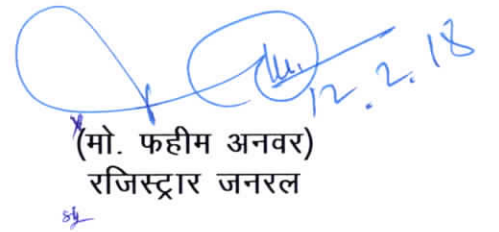 12.2.18
(मो. फहीम अनवर)
रजिस्ट्रार जनरल